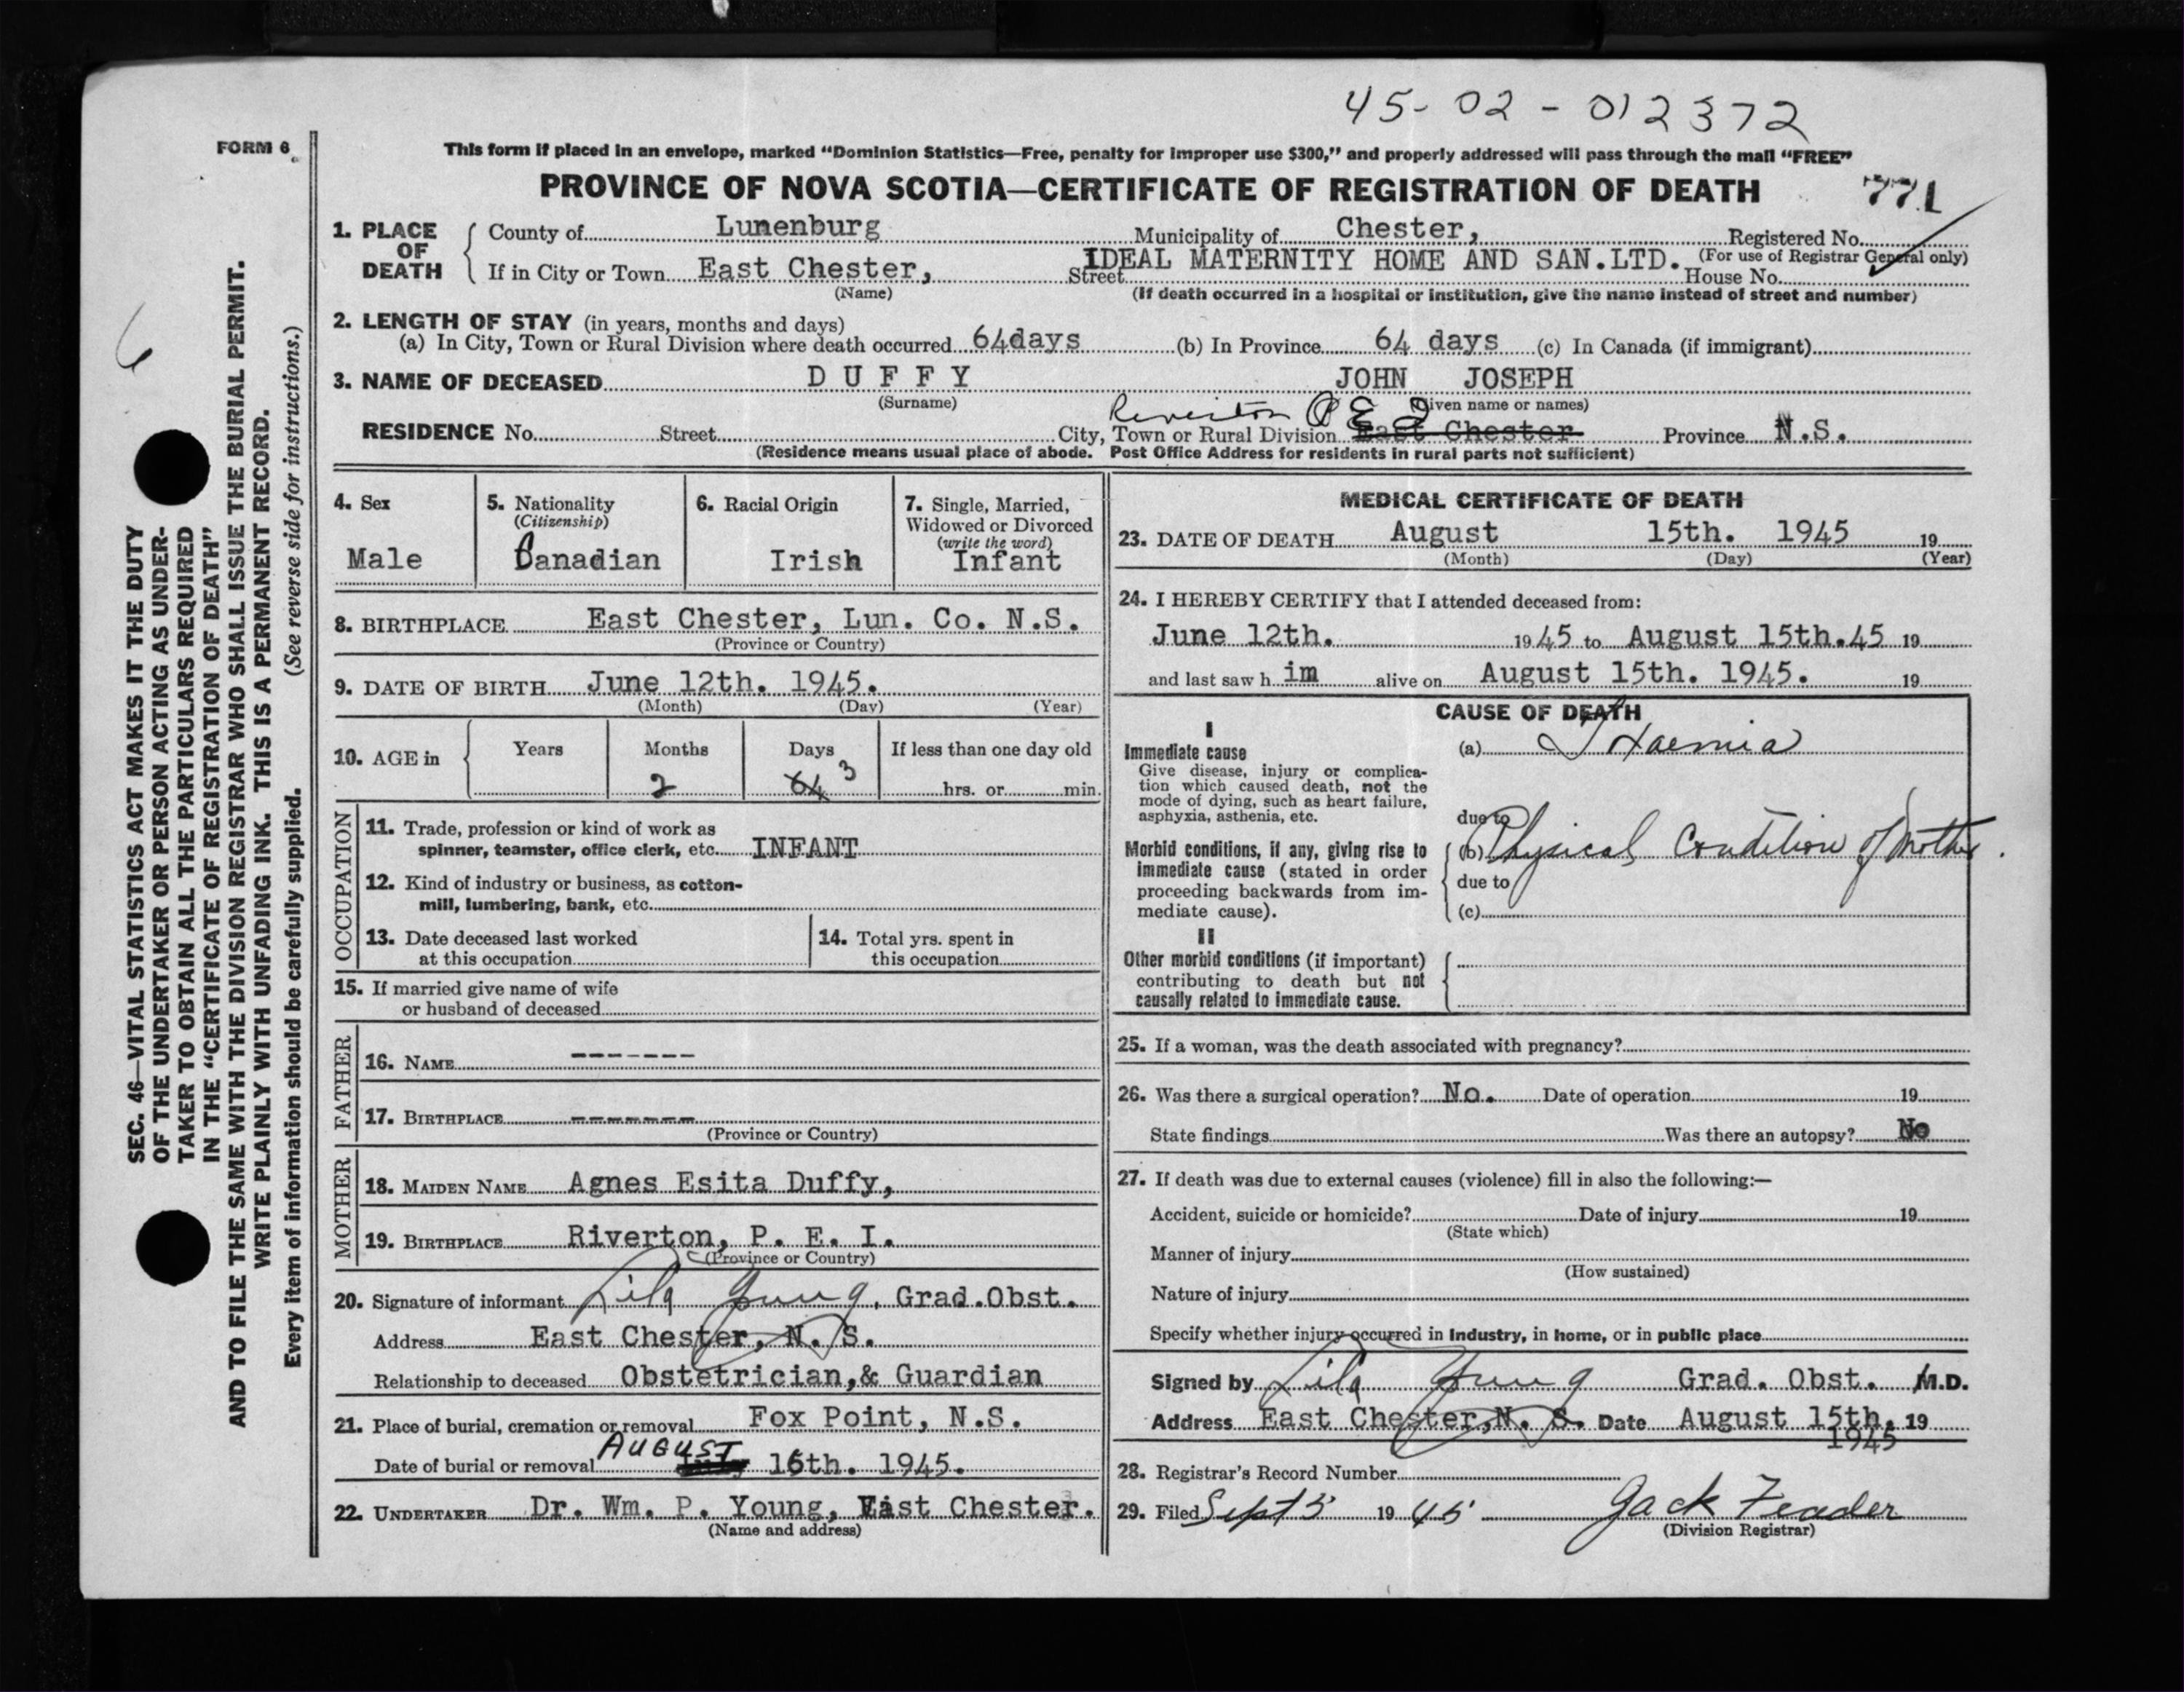 45-02-012372
FORM 6
This form if placed in an envelope, marked “Dominion Statistics—Free, penalty for improper use $300,” and properly addressed will pass through the mail “FREE”
PROVINCE OF NOVA SCOTIA—CERTIFICATE OF REGISTRATION OF DEATH
771
1. PLACE OF DEATH
County of Lunenburg Municipality of Chester, Registered No.
(For use of Registrar General only)
If in City or Town East Chester, Street IDEAL MATERNITY HOME AND SAN.LTD. House No.
(Name) (If death occurred in a hospital or institution, give the name instead of street and number)
2. LENGTH OF STAY (in years, months and days)
(a) In City, Town or Rural Division where death occurred 64days (b) In Province 64 days (c) In Canada (if immigrant)
3. NAME OF DECEASED D U F F Y JOHN JOSEPH
(Surname) (Given name or names)
Riverton P E I
RESIDENCE No. Street City, Town or Rural Division East Chester Province N.S.
(Residence means usual place of abode. Post Office Address for residents in rural parts not sufficient)
4. Sex
Male
5. Nationality
(Citizenship)
Canadian
6. Racial Origin
Irish
7. Single, Married,
Widowed or Divorced
(write the word)
Infant
8. BIRTHPLACE East Chester, Lun. Co. N.S.
(Province or Country)
9. DATE OF BIRTH June 12th. 1945.
(Month) (Day) (Year)
10. AGE in Years Months Days If less than one day old
2 64 3 hrs. or min.
OCCUPATION
11. Trade, profession or kind of work as
spinner, teamster, office clerk, etc. INFANT
12. Kind of industry or business, as cotton-
mill, lumbering, bank, etc.
13. Date deceased last worked
at this occupation
14. Total yrs. spent in
this occupation
15. If married give name of wife
or husband of deceased
FATHER
16. NAME -------
17. BIRTHPLACE -------
(Province or Country)
MOTHER
18. MAIDEN NAME Agnes Esita Duffy,
19. BIRTHPLACE Riverton, P. E. I.
(Province or Country)
20. Signature of informant Lila Young, Grad.Obst.
Address East Chester, N. S.
Relationship to deceased Obstetrician,& Guardian
21. Place of burial, cremation or removal Fox Point, N.S.
Date of burial or removal AUGUST July 16th. 1945.
22. UNDERTAKER Dr. Wm. P. Young, East Chester.
(Name and address)
MEDICAL CERTIFICATE OF DEATH
23. DATE OF DEATH August 15th. 1945 19
(Month) (Day) (Year)
24. I HEREBY CERTIFY that I attended deceased from:
June 12th. 1945 to August 15th.45 19
and last saw h im alive on August 15th. 1945. 19
CAUSE OF DEATH
I
Immediate cause
Give disease, injury or complica-
tion which caused death, not the
mode of dying, such as heart failure,
asphyxia, asthenia, etc.
(a)
due to
Morbid conditions, if any, giving rise to
immediate cause (stated in order
proceeding backwards from im-
mediate cause).
(b) Physical Condition of Mother.
due to
(c)
II
Other morbid conditions (if important)
contributing to death but not
causally related to immediate cause.
25. If a woman, was the death associated with pregnancy?
26. Was there a surgical operation? No. Date of operation 19
State findings Was there an autopsy? No
27. If death was due to external causes (violence) fill in also the following:—
Accident, suicide or homicide? Date of injury 19
(State which)
Manner of injury
(How sustained)
Nature of injury
Specify whether injury occurred in industry, in home, or in public place
Signed by Lila Young Grad. Obst. M.D.
Address East Chester,N. S. Date August 15th. 19
1945
28. Registrar's Record Number
29. Filed Sept 5 19 45 Jack Feader
(Division Registrar)
SEC. 46—VITAL STATISTICS ACT MAKES IT THE DUTY
OF THE UNDERTAKER OR PERSON ACTING AS UNDER-
TAKER TO OBTAIN ALL THE PARTICULARS REQUIRED
IN THE “CERTIFICATE OF REGISTRATION OF DEATH”
AND TO FILE THE SAME WITH THE DIVISION REGISTRAR WHO SHALL ISSUE THE BURIAL PERMIT.
WRITE PLAINLY WITH UNFADING INK. THIS IS A PERMANENT RECORD.
Every item of information should be carefully supplied. (See reverse side for instructions.)
6